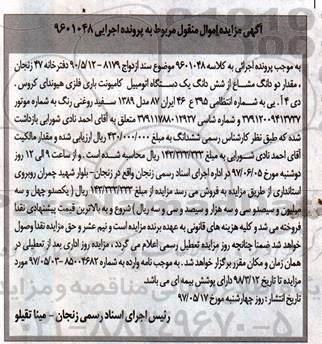 آگهی مزایده اموال منقول مربوط به پرونده اجرایی ۹۶۰۱۰۴۸
به موجب پرونده اجرائی به کلاسه ۹۶۰۱۰۴۸ موضوع سند ازدواج ۸۱۷۹-۹۰/۵/۱۲ دفترخانه ۴۷ زنجان
، مقدار دو دانگ مشاع از شش دانگ یک دستگاه اتومبیل کامیونت باری فلزی هیوندای کروس .
دی ۴ آ . بی به شماره انتظامی ۳۹۵ ع ۴۶ ایران ۸۷ مدل ۱۳۸۹ سفید روغنی رنگ به شماره موتور
۳۶۹۱۲۰۰۹۴۱۳۲۳۷ و شماره شاسی ۳۶۹۱۱۷۸۸۰۱۲۹۳۷ متعلق به آقای احمد نادی شورابی بازداشت
شده که طبق نظر کارشناس رسمی ششدانگ به مبلغ ۴۳۰/۰۰۰/۰۰۰ ریال ارزیابی شده و مقدار مالکیت
آقای احمد نادی شورابی به مبلغ ۱۴۳/۳۳۳/۳۳۳ ریال محاسبه شده است . و از ساعت ۹ الی ۱۲ روز
دوشنبه مورخ ۹۷/۰۶/۰۵ در اداره اجرای اسناد رسمی زنجان واقع در زنجان- بلوار شهید چمران روبروی
استانداری از طریق مزایده به فروش می رسد مزایده از مبلغ ۱۴۳/۳۳۳/۳۳۳ ریال ( یکصدو چهل و سه
میلیون و سیصدو سی و سه هزار و سیصد و سی و سه ریال ) شروع و به بالاترین قیمت پیشنهادی نقدا
فروخته می شد و کلیه هزینه های قانونی به عهده برنده مزایده است و نیم عشر و حق مزایده نقدا وصول
خواهد شد ضمنا چنانچه روز مزایده تعطیل رسمی اعلام می گردد ، مزایده روز اداری بعد از تعطیلی در
همان زمان و مکان مقرر برگزار خواهد شد. به موجب نامه وارده به شماره ۸۵۰۰۴۶۸۲-۹۷/۰۵/۰۳
تاریخ ۹۸/۳/۱۲ دارای پوشش بیمه ای می باشد
تاریخ انتشار : روز چهارشنبه مورخ ۹۷/۰۵/۱۷
رئیس اجرای اسناد رسمی زنجان - مینا تقیلو